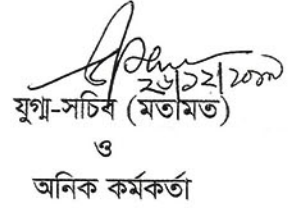 ২৬|১২|২০১৭
যুগ্ম-সচিব (মতামত)
ও
অনিক কর্মকর্তা